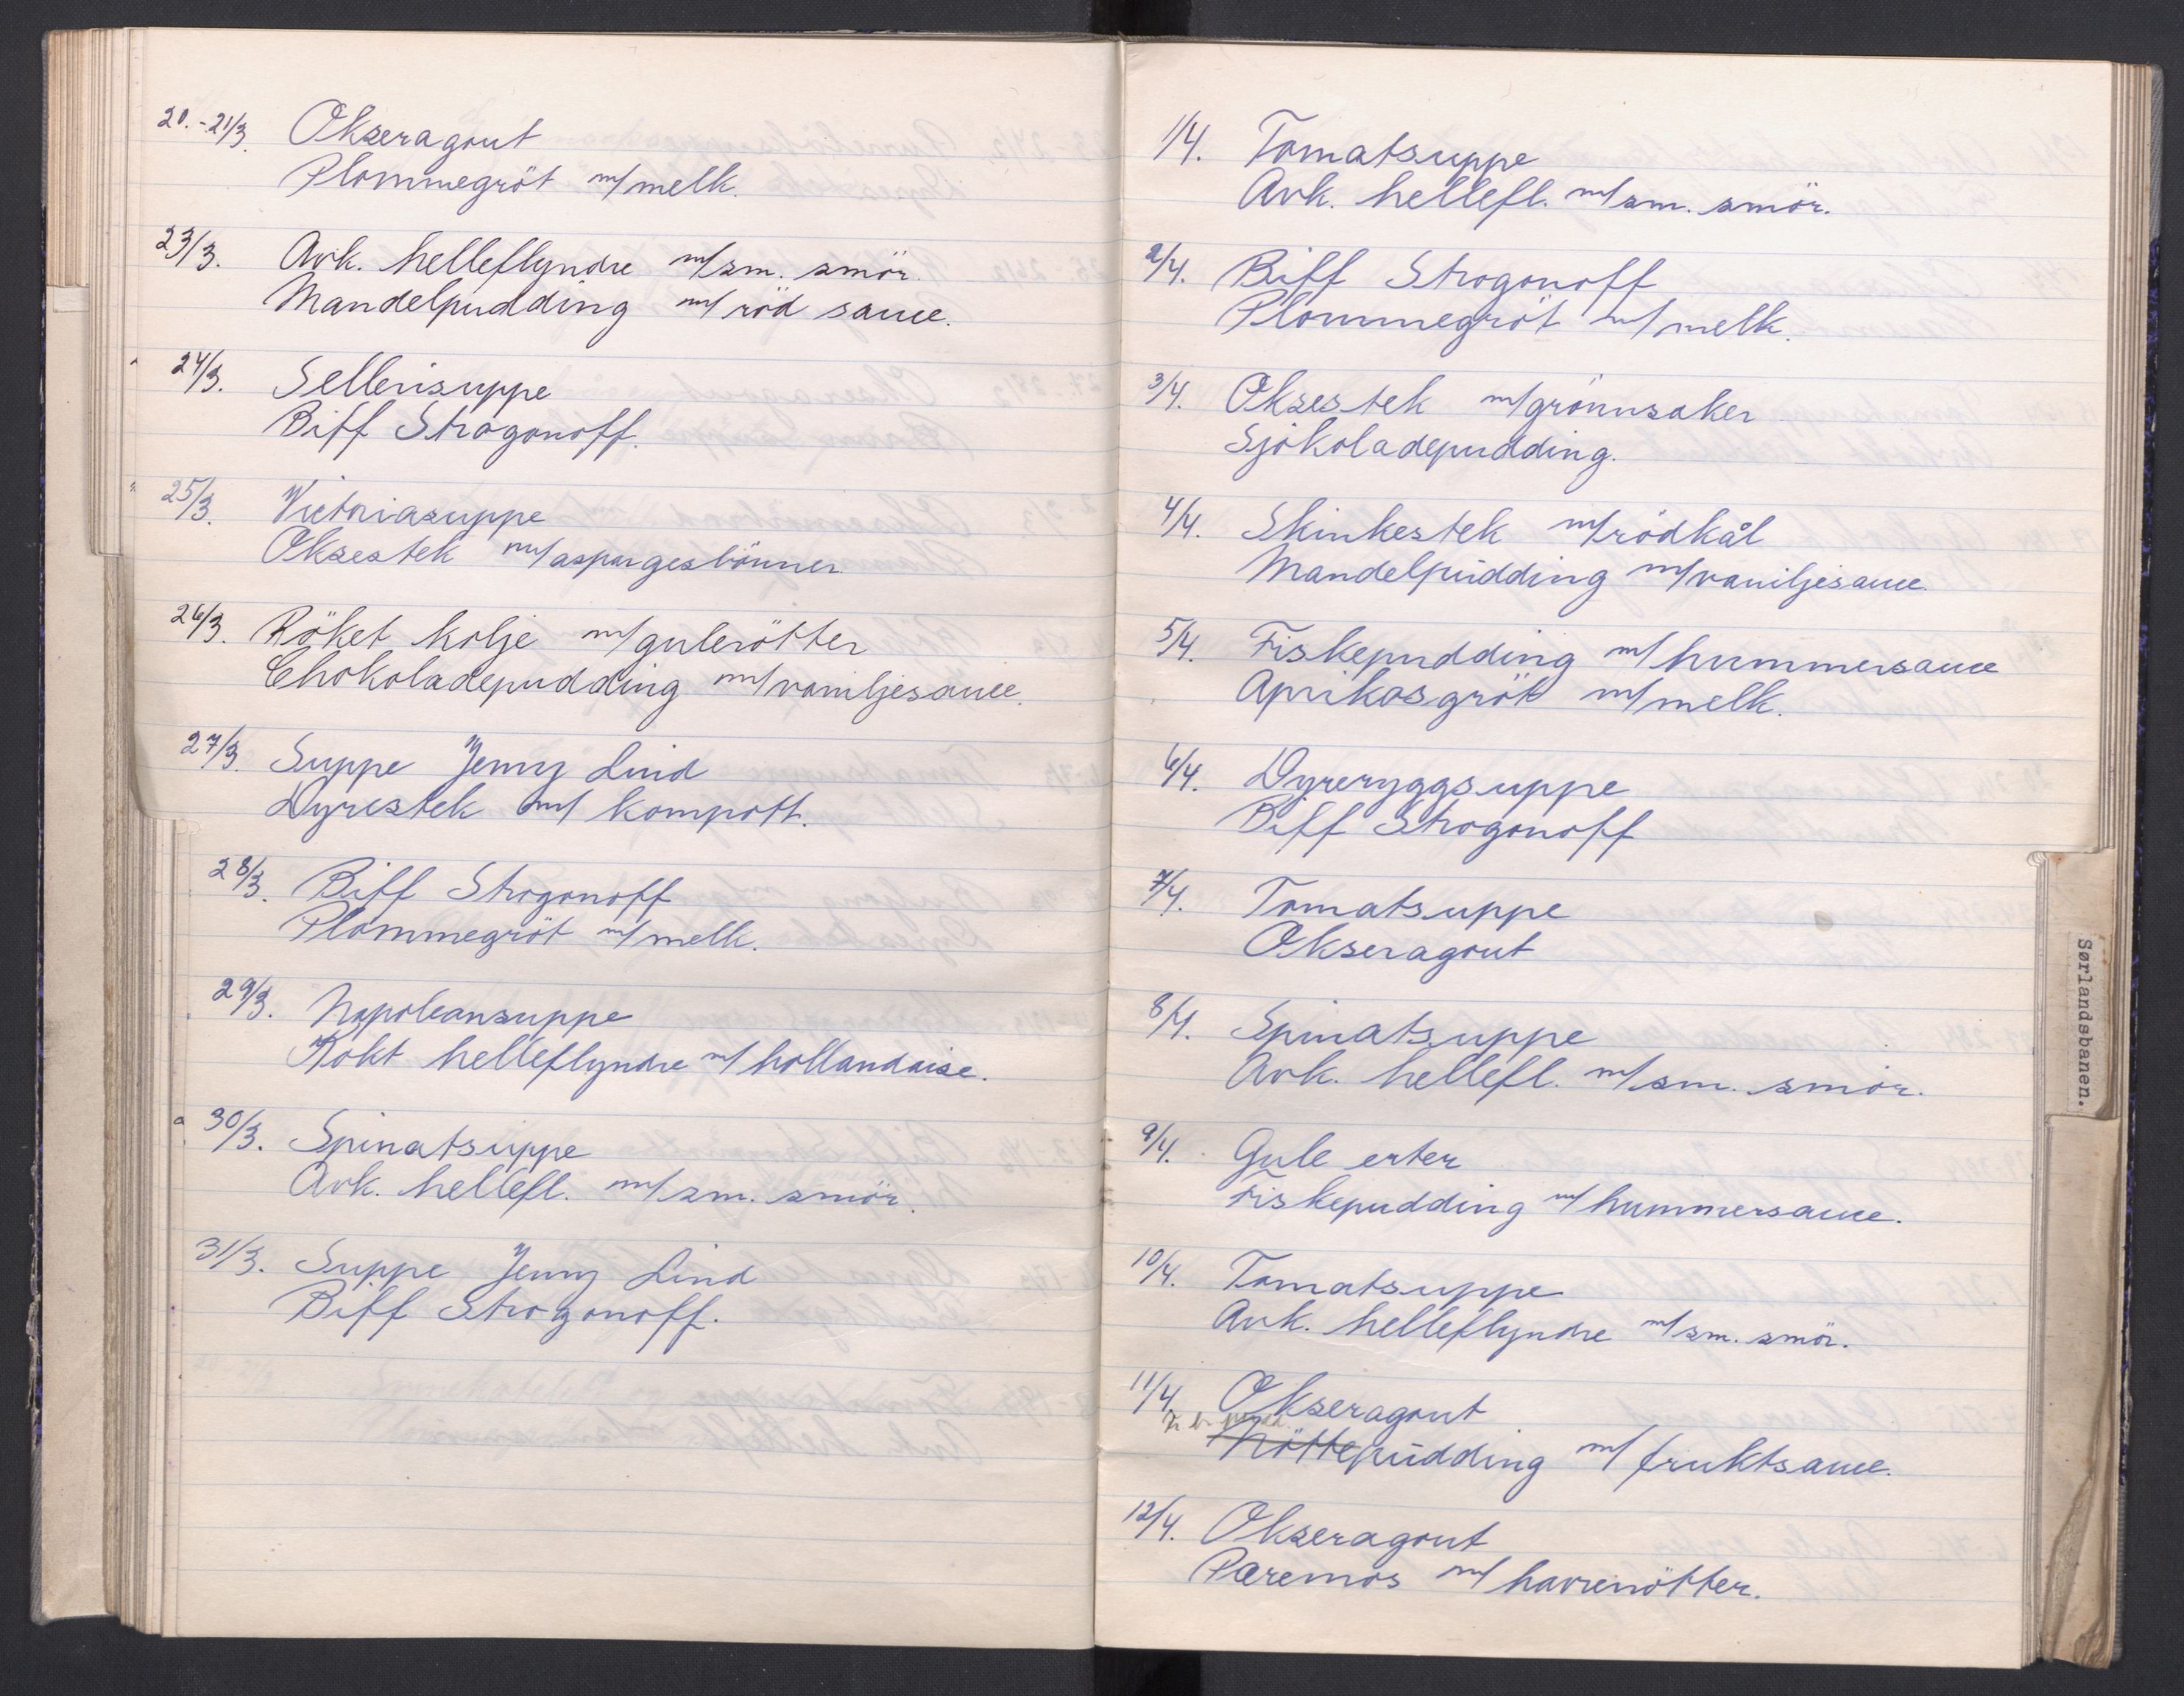 20.-21/3. Okseragout
Plommegröt m/melk.
23/3. Avk. helleflyndre m/sm. smör.
Mandelpudding m/röd sauce.
24/3. Sellerisuppe
Biff Strogonoff.
25/3. Victoriasuppe
Oksestek m/aspargesbönner
26/3. Röket kolje m/gulerötter
Chokoladepudding m/vaniljesauce.
27/3. Suppe Jenny Lind
Dyrestek m/ kompott.
28/3. Biff Strogonoff
Plommegröt m/melk.
29/3. Napoleonsuppe
Kokt helleflyndre m/hollandaise.
30/3. Spinatsuppe
Avk. hellefl. m/sm. smör.
31/3. Suppe Jenny Lind
Biff Strogonoff.
1/4. Tomatsuppe
Avk. hellefl. m/sm. smör.
2/4. Biff Strogonoff
Plommegröt m/melk.
3/4. Oksestek m/grönnsaker
Sjokoladepudding.
4/4. Skinkestek m/rödkål
Mandelpudding m/vaniljesauce.
5/4. Fiskepudding m/hummersauce
Aprikosgröt m/melk.
6/4. Dyreryggsuppe
Biff Strogonoff
7/4. Tomatsuppe
Okseragout
8/4. Spinatsuppe
Avk. hellefl. m/sm. smör.
9/4. Gule erter
Fiskepudding m/hummersauce.
10/4. Tomatsuppe
Avk. helleflyndre m/sm. smör.
11/4. Okseragout
Nöttepudding m/fruktsauce.
12/4. Okseragout
Pæremos m/havrenötter.
Sørlandsbanen.